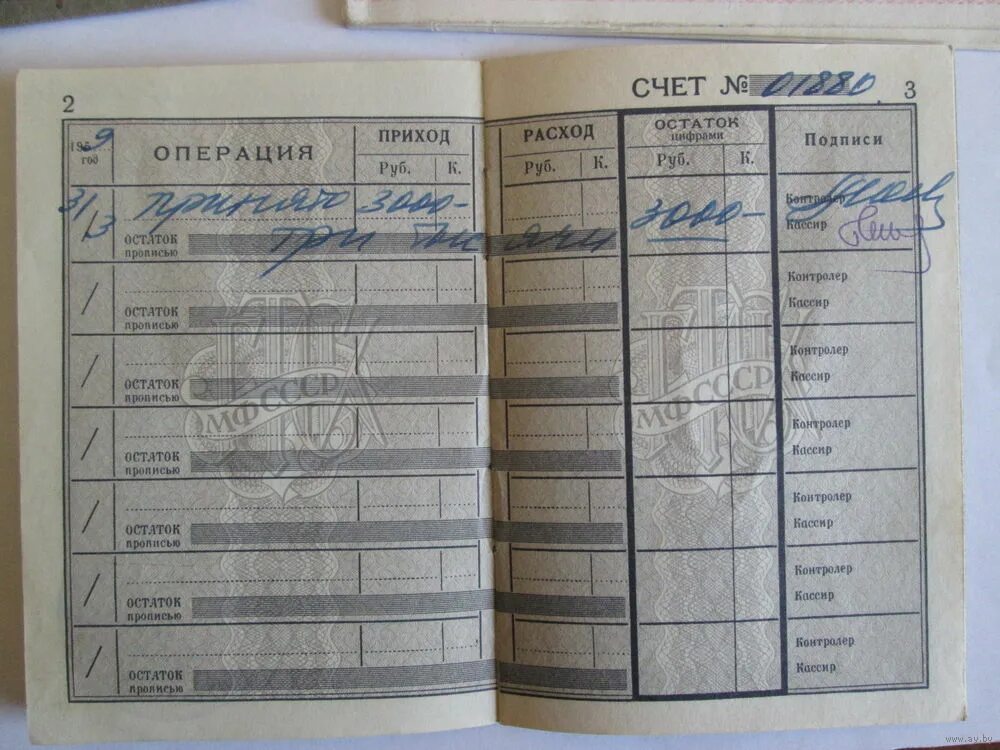 2
СЧЕТ № 01880
3
1959 год
ОПЕРАЦИЯ
ПРИХОД
РАСХОД
ОСТАТОК цифрами
Подписи
Руб. К.
Руб. К.
Руб. К.
31/3 принято 3000- 3000- Контролер
ОСТАТОК прописью три тысячи Кассир
/ Контролер
ОСТАТОК прописью Кассир
/ Контролер
ОСТАТОК прописью Кассир
/ Контролер
ОСТАТОК прописью Кассир
/ Контролер
ОСТАТОК прописью Кассир
/ Контролер
ОСТАТОК прописью Кассир
/ Контролер
ОСТАТОК прописью Кассир
МФ СССР
МФ СССР
www.ay.by